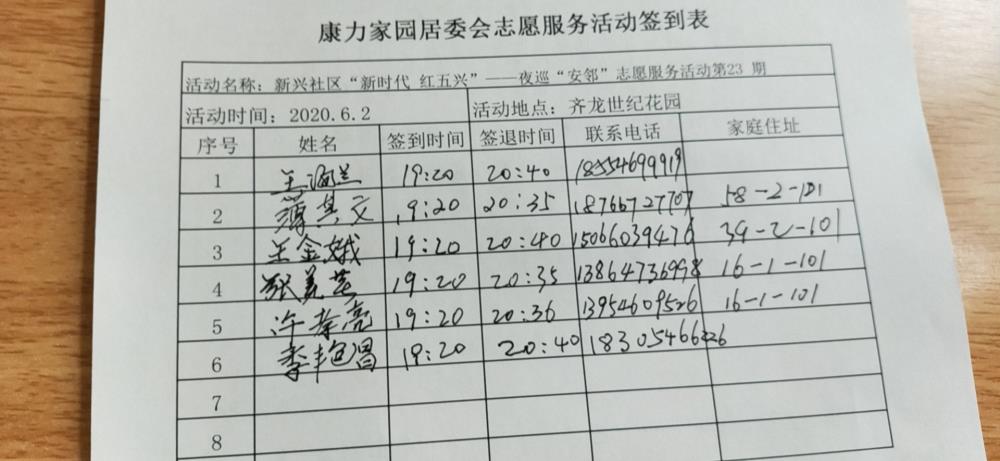 康力家园居委会志愿服务活动签到表
活动名称：新兴社区“新时代 红五兴”——夜巡“安邻”志愿服务活动第23 期
活动时间：2020.6.2 活动地点：齐龙世纪花园
序号 姓名 签到时间 签退时间 联系电话 家庭住址
1 王海兰 19:20 20:40 18554699919
2 薄其文 19:20 20:35 18766727707 58-2-101
3 王金娥 19:20 20:40 15066039476 39-2-101
4 张美英 19:20 20:35 13864736998 16-1-101
5 许春亮 19:20 20:36 13954609526 16-1-101
6 李艳昌 19:20 20:40 18305466226
7
8